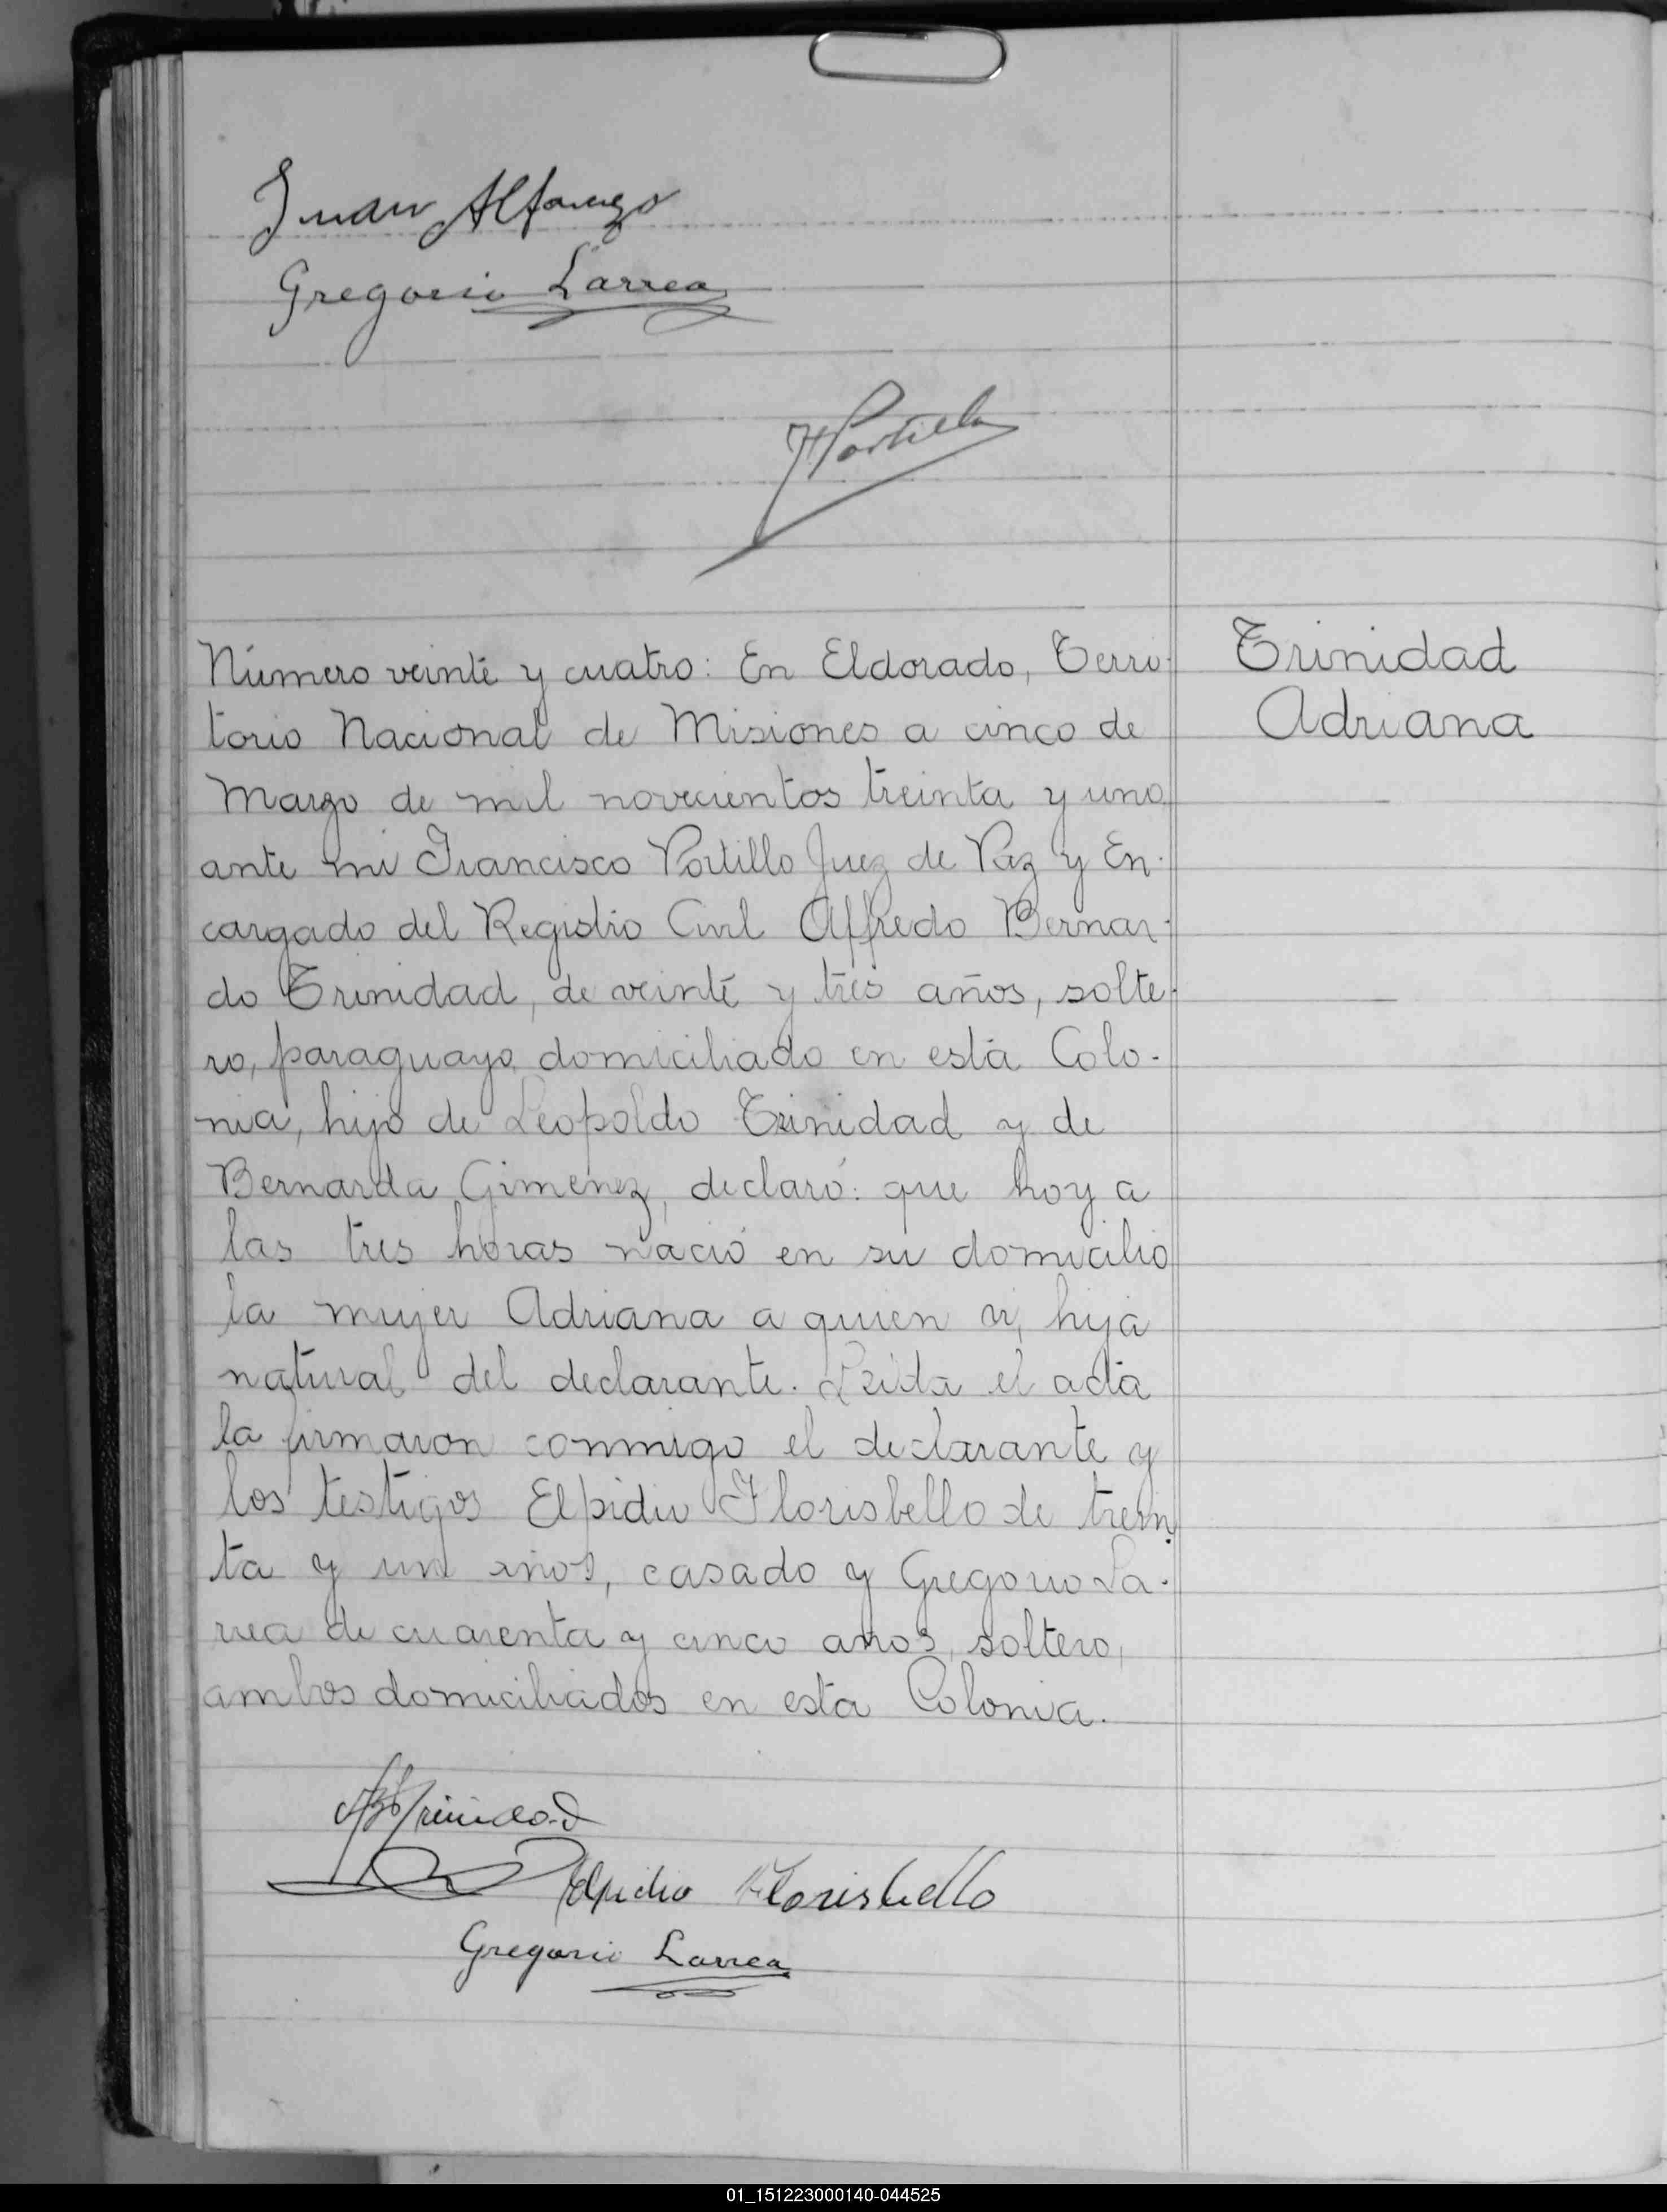 Juan Alfonzo
Gregorio Larrea
FPortillo
Número veinte y cuatro: En Eldorado, Terri-
torio Nacional de Misiones a cinco de
Marzo de mil novecientos treinta y uno
ante mi Francisco Portillo Juez de Paz y En-
cargado del Registro Civil Alfredo Bernar-
do Trinidad, de veinte y tres años, solte-
ro, paraguayo, domiciliado en esta Colo-
nia, hijo de Leopoldo Trinidad y de
Bernarda Gimenez, declaró: que hoy a
las tres horas nació en su domicilio
la mujer Adriana a quien vi, hija
natural del declarante. Leida el acta
la firmaron conmigo el declarante y
los testigos Elpidio Florisbello de trein-
ta y un años, casado y Gregorio La-
rrea de cuarenta y cinco años, soltero,
ambos domiciliados en esta Colonia.
ABTrinidad
Elpidio Florisbello
Gregorio Larrea
Trinidad
Adriana
01_151223000140-044525